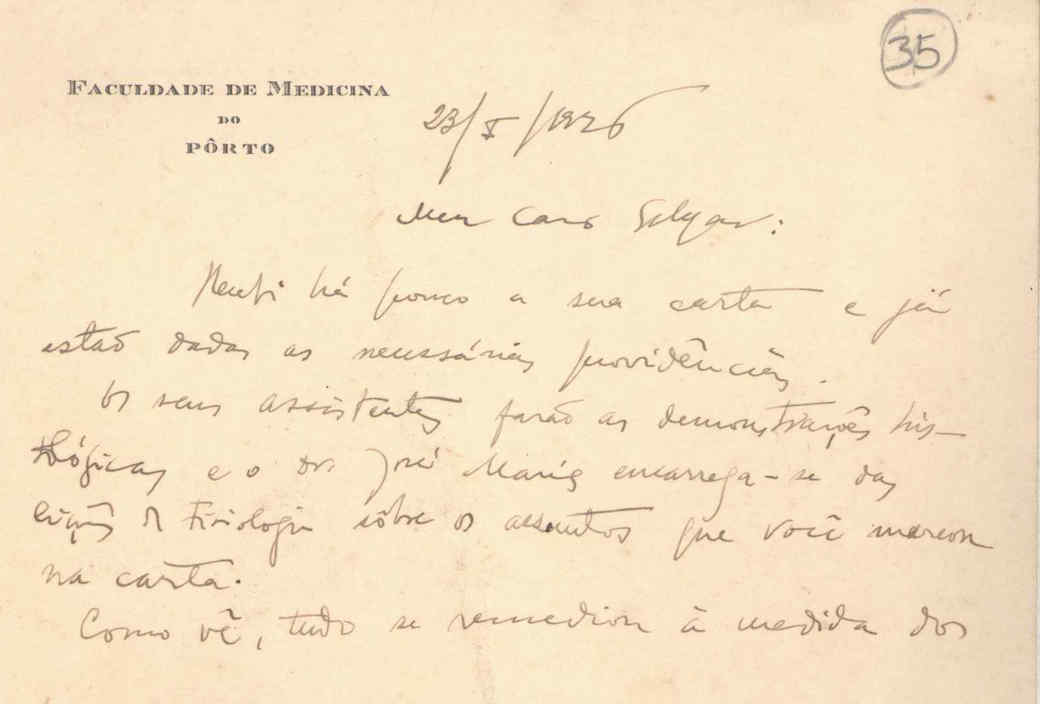 35
FACULDADE DE MEDICINA
DO
PÔRTO
23/X/1926
Meu Caro
Recebi há pouco a sua carta e já
estão dadas as necessárias providências.
Os seus assistentes farão as demonstrações his-
tológicas e o Dr. José Maria encarrega-se das
lições de Fisiologia sôbre os assuntos que você marcou
na carta.
Como vê, tudo se remediou à medida dos